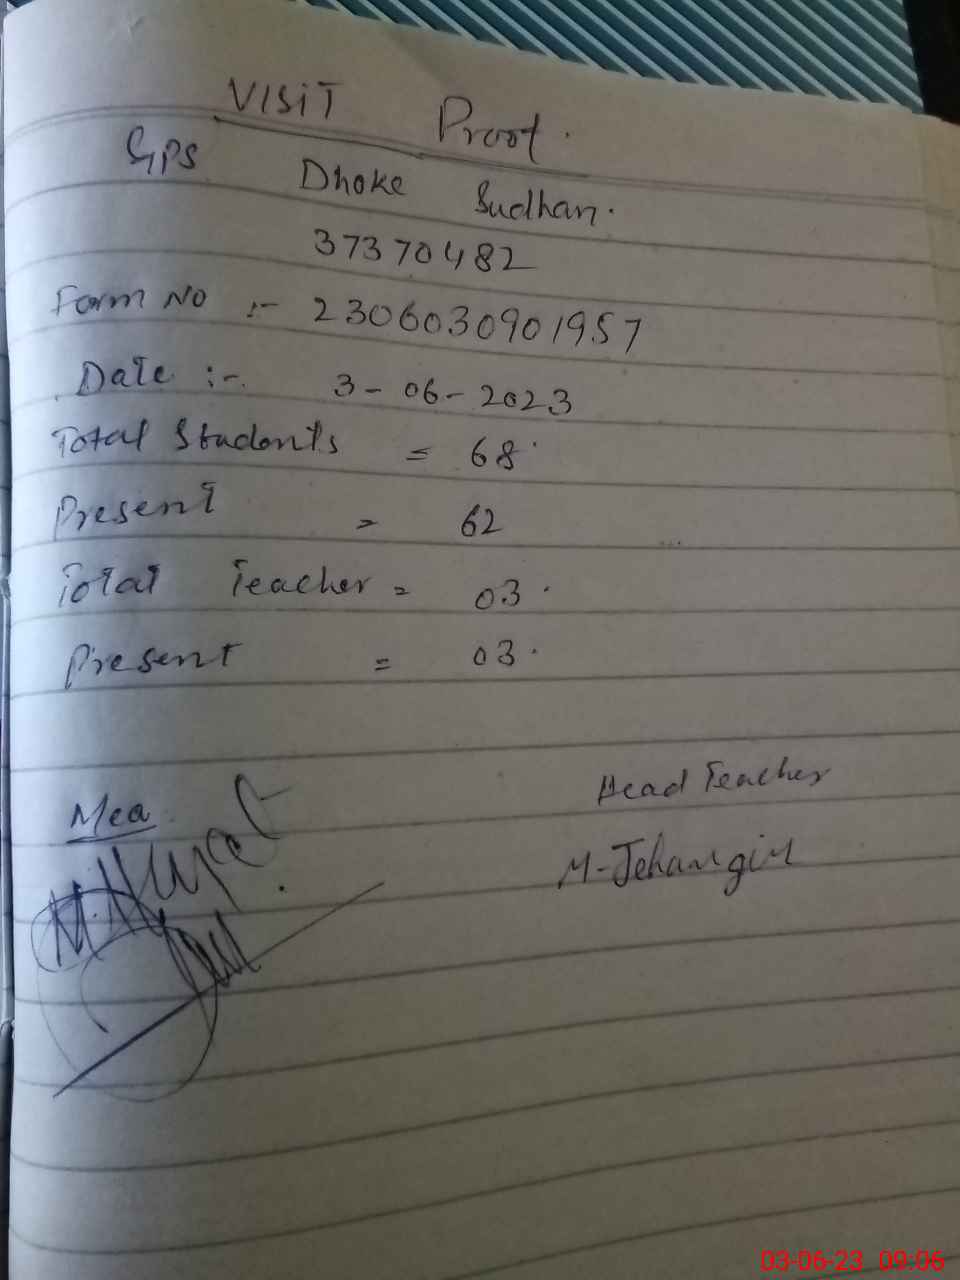 VISIT Proof.
GPS Dhoke Sudhan.
37370482
Form No :- 2306030901957
Date :- 3-06-2023
Total Students = 68
Present = 62
Total Teacher = 03.
Present = 03.
Mea Head Teacher
M-Jehangir
03-06-23 09:06